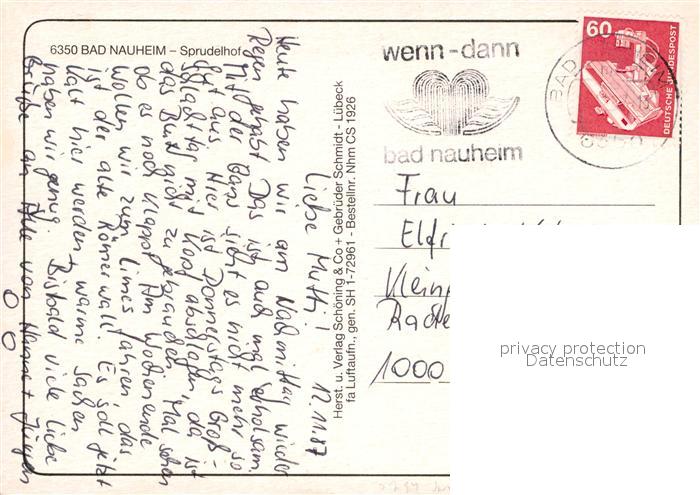 6350 BAD NAUHEIM – Sprudelhof
Liebe Mutti! 12.11.87
Heute haben wir am Nachmittag wieder
Regen gehabt. Das ist auch mal erholsam.
Mit der Gans sieht es nicht mehr so
gut aus. Hier ist Donnerstags Groß-
schlachttag mit Kopf abschlagen, da ist
das Blut nicht zu gebrauchen. Mal sehen
ob es noch klappt. Am Wochenende
wollen wir zum Limes fahren, das
ist der alte Römerwall. Es soll jetzt
kalt hier werden, warme Sachen
haben wir genug. Bis bald viele liebe
Grüße an Alle von Hanne + Jürgen
Herst. u. Verlag Schöning & Co + Gebrüder Schmidt - Lübeck
fa Luftaufn., gen. SH 1-72961 - Bestellnr. Nhm CS 1926
wenn-dann
bad nauheim
BAD
6350
60
DEUTSCHE BUNDESPOST
Frau
1000
privacy protection
Datenschutz